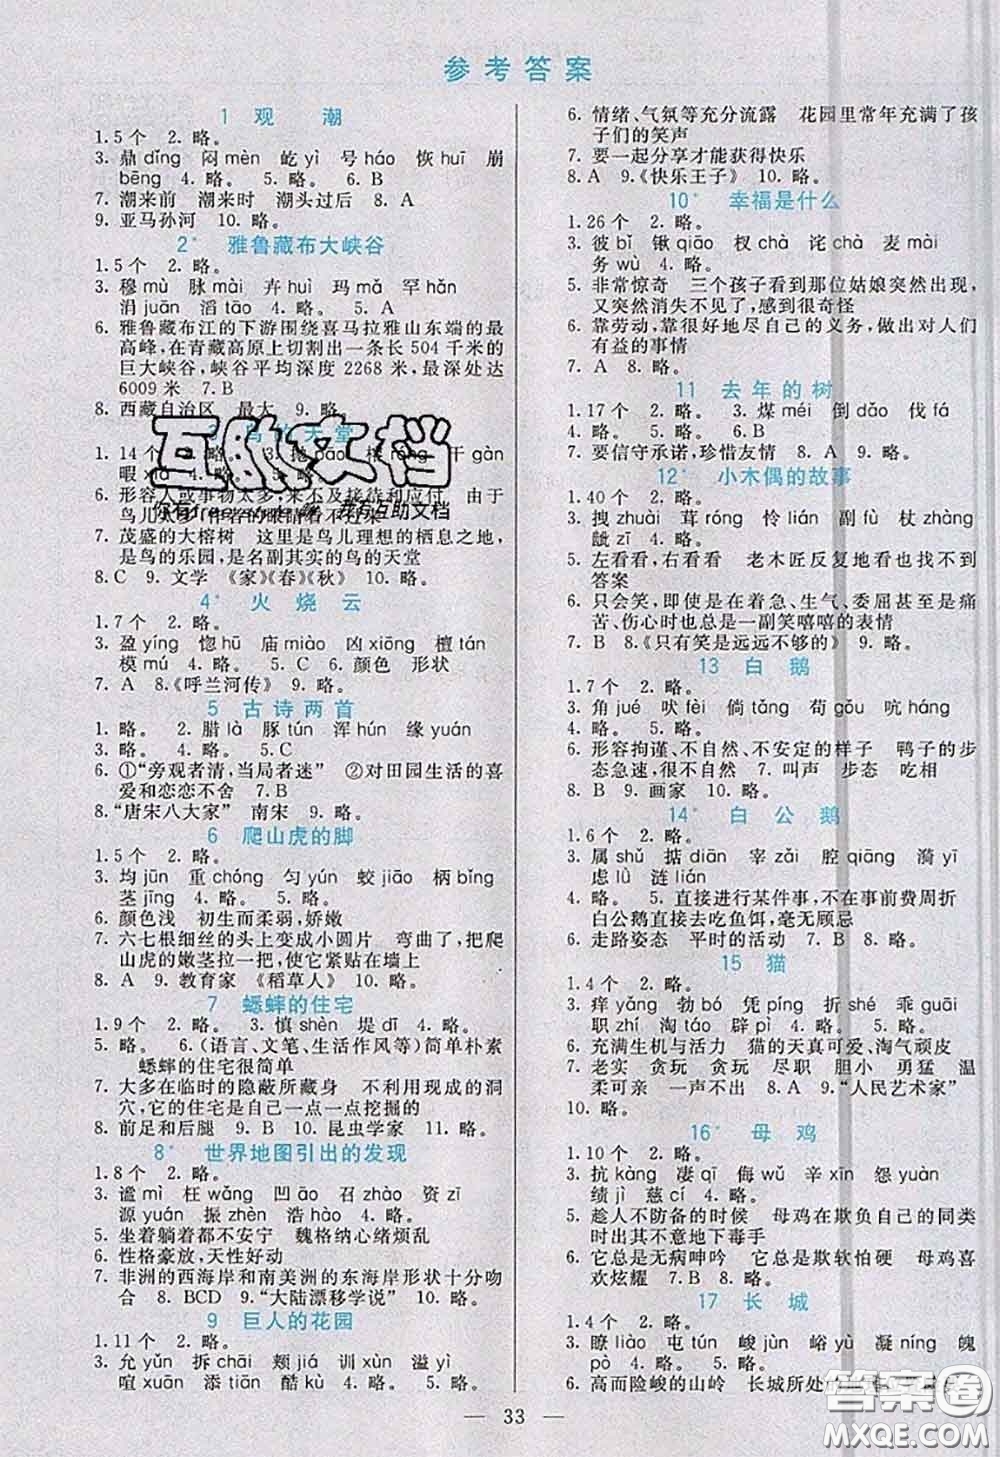 参考答案
1 观 潮
1.5个 2.略。
3.鼎dǐng 闷mèn 屹yì 号háo 恢huī 崩
bēng 4.略。 5.略。 6.B
7.潮来前 潮来时 潮过后 8.A
9.亚马孙河 10.略。
2* 雅鲁藏布大峡谷
1.5个 2.略。
3.穆mù 脉mài 卉huì 玛mǎ 罕hǎn
涓juān 滔tāo 4.略。 5.A
6.雅鲁藏布江的下游围绕喜马拉雅山东端的最
高峰,在青藏高原上切割出一条长504千米的
巨大峡谷,峡谷平均深度2268米,最深处达
6009米 7.B
8.西藏自治区 最大 9.略
的天堂
1.14个
干gàn
暇 10.略。
6.形容人或事物太多,来不及接待和应付 由于
鸟儿太多,作者的眼睛看不过来
7.茂盛的大榕树 这里是鸟儿理想的栖息之地,
是鸟的乐园,是名副其实的鸟的天堂
8.C 9.文学 《家》《春》《秋》 10.略。
4* 火烧云
1.7个 2.略。
3.盈yíng 惚hū 庙miào 凶xiōng 檀tán
模mú 4.略。 5.C 6.颜色 形状
7.A 8.《呼兰河传》 9.略。
5 古诗两首
1.略。 2.腊là 豚tún 浑hún 缘yuán
3.略。 4.略。 5.C
6.①“旁观者清,当局者迷” ②对田园生活的喜
爱和恋恋不舍 7.B
8.“唐宋八大家” 南宋 9.略。
6 爬山虎的脚
1.5个 2.略。
3.均jūn 重chóng 匀yún 蛟jiāo 柄bǐng
茎jīng 4.略。 5.略。
6.颜色浅 初生而柔弱,娇嫩
7.六七根细丝的头上变成小圆片 弯曲了,把爬
山虎的嫩茎拉一把,使它紧贴在墙上
8.A 9.教育家 《稻草人》 10.略。
7 蟋蟀的住宅
1.9个 2.略。 3.慎shèn 堤dī 4.略。
5.略。 6.(语言、文笔、生活作风等)简单朴素
蟋蟀的住宅很简单
7.大多在临时的隐蔽所藏身 不利用现成的洞
穴,它的住宅是自己一点一点挖掘的
8.前足和后腿 9.B 10.昆虫学家 11.略。
8* 世界地图引出的发现
1.8个 2.略。
3.谧mì 枉wǎng 凹āo 召zhào 资zī
源yuán 振zhèn 浩hào 4.略。
5.坐着躺着都不安宁 魏格纳心绪烦乱
6.性格豪放,天性好动
7.非洲的西海岸和南美洲的东海岸形状十分吻
合 8.BCD 9.“大陆漂移学说” 10.略。
9 巨人的花园
1.11个 2.略。
3.允yǔn 拆chāi 颊jiá 训xùn 溢yì
喧xuān 添tiān 酷kù 4.略。 5.略。
6.情绪、气氛等充分流露 花园里常年充满了孩
子们的笑声
7.要一起分享才能获得快乐
8.A 9.《快乐王子》 10.略。
10* 幸福是什么
1.26个 2.略。
3.彼bǐ 锹qiāo 杈chà 诧chà 麦mài
务wù 4.略。
5.非常惊奇 三个孩子看到那位姑娘突然出现,
又突然消失不见了,感到很奇怪
6.靠劳动,靠很好地尽自己的义务,做出对人们
有益的事情
7.A 8.略。
11 去年的树
1.17个 2.略。 3.煤méi 倒dǎo 伐fá
4.略。 5.略。 6.B
7.要信守承诺,珍惜友情 8.略。
12* 小木偶的故事
1.40个 2.略。
3.拽zhuài 茸róng 怜lián 副fù 杖zhàng
龇zī 4.略。
5.左看看,右看看 老木匠反复地看也找不到
答案
6.只会笑,即使在着急、生气、委屈甚至是痛
苦、伤心时也总是一副笑嘻嘻的表情
7.B 8.《只有笑是远远不够的》 9.略。
13 白 鹅
1.7个 2.略。
3.角jué 吠fèi 倘tǎng 苟gǒu 吭háng
4.略。 5.略。
6.形容拘谨、不自然、不安定的样子 鸭子的步
态急速,很不自然 7.叫声 步态 吃相
8.B 9.画家 10.略。
14* 白公鹅
1.4个 2.略。
3.属shǔ 掂diān 宰zǎi 腔qiāng 漪yī
虑lǜ 涟lián
4.略。 5.直接进行某件事,不费周折
白公鹅直接去吃鱼饵,毫无顾忌
6.走路姿态 平时的活动 7.A 8.略。
15 猫
1.4个 2.略。
3.痒yǎng 勃bó 凭píng 折shé 乖guāi
职zhí 淘táo 辟pì 4.略。 5.略。
6.充满生机与活力 猫的天真可爱、淘气顽皮
7.老实 贪玩 贪玩 尽职 胆小 勇猛 温
柔可亲 一声不出 8.A 9.“人民艺术家”
10.略。
16* 母 鸡
1.10个 2.略。
3.抗kàng 凄qī 侮wǔ 辛xīn 怨yuàn
绩jì 慈cí 4.略。
5.趁人不防备的时候 母鸡在欺负自己的同类
时出其不意地下毒手
6.它总是无病呻吟 它总是欺软怕硬 母鸡喜
欢炫耀 7.B 8.略。
17 长 城
1.4个 2.略。
3.瞭liào 屯tún 峻jùn 峪yù 凝níng 魄
pò 4.略。 5.略。
6.高而险峻的山岭 长城所处的
— 33 —
互助文档
你有free 我有互助文档
答案圈
MXQE.COM